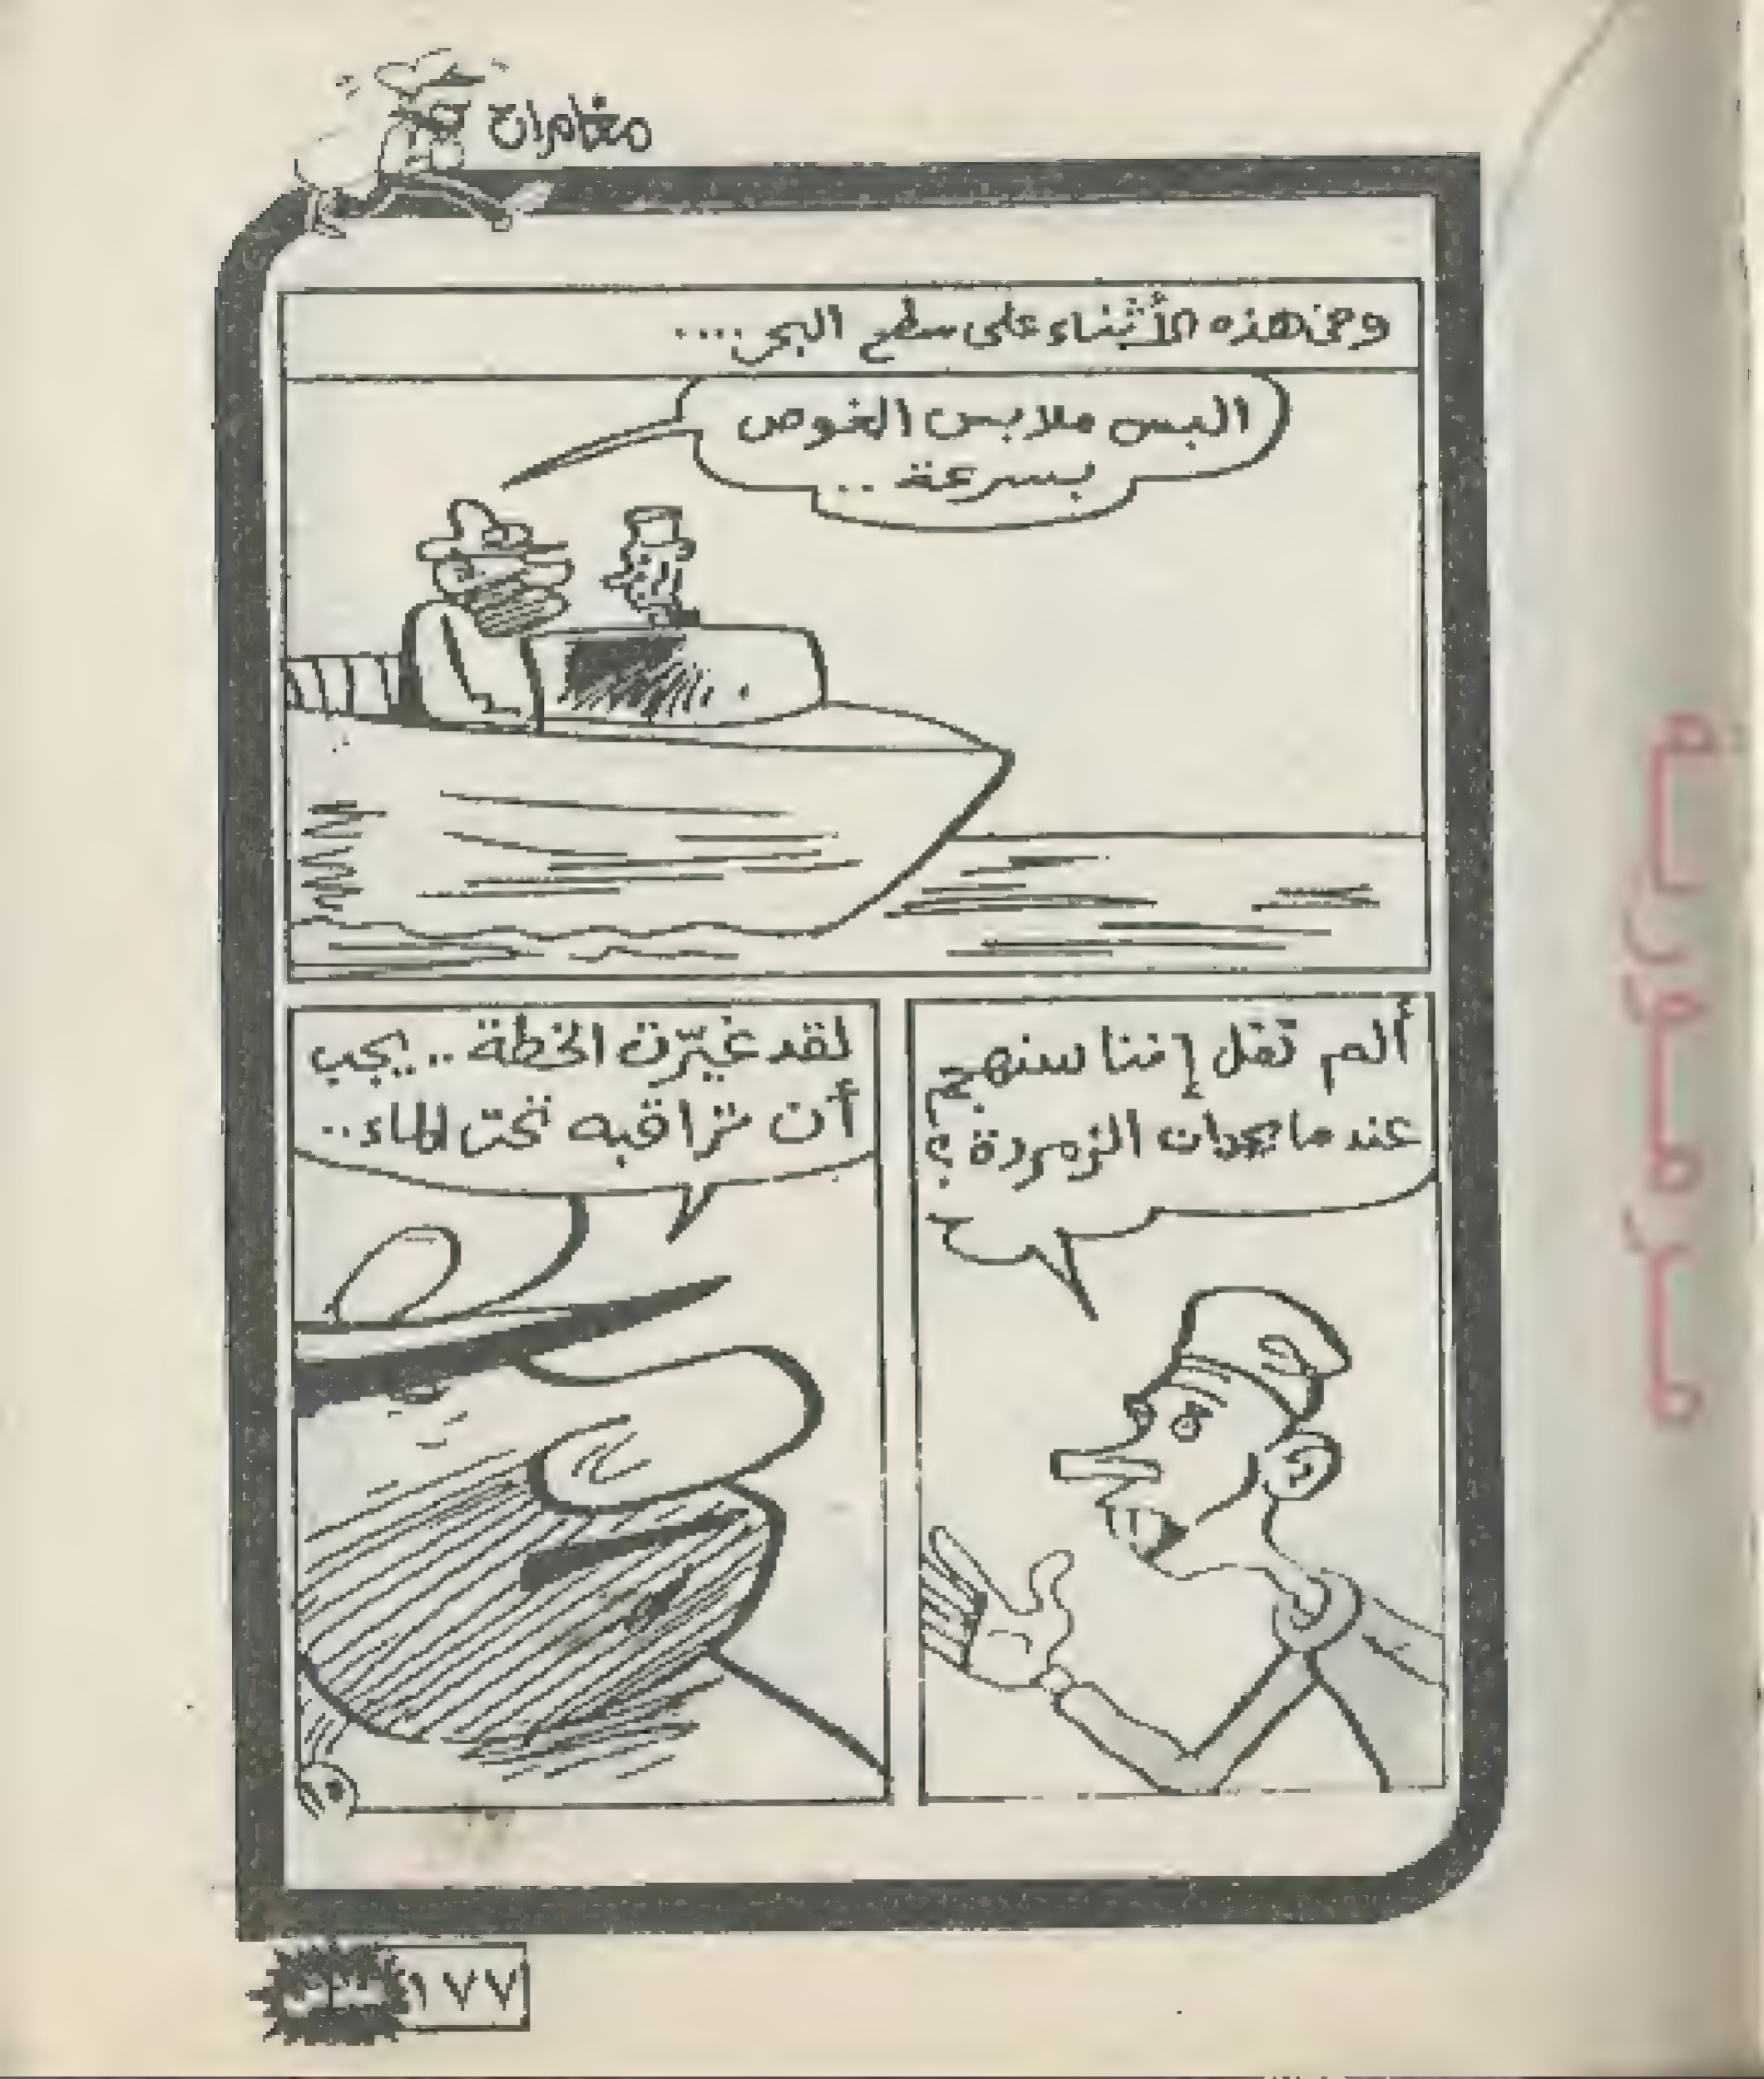 مغامرات
وفى هذه الأثناء على سطح البحر....
البس ملابس الغوص
بسرعة ..
ألم تقل إننا سنهجم
عندما يجدان الزمردة؟
لقد غيّرت الخطة .. يجب
أن نراقبه تحت الماء..
١٧٧